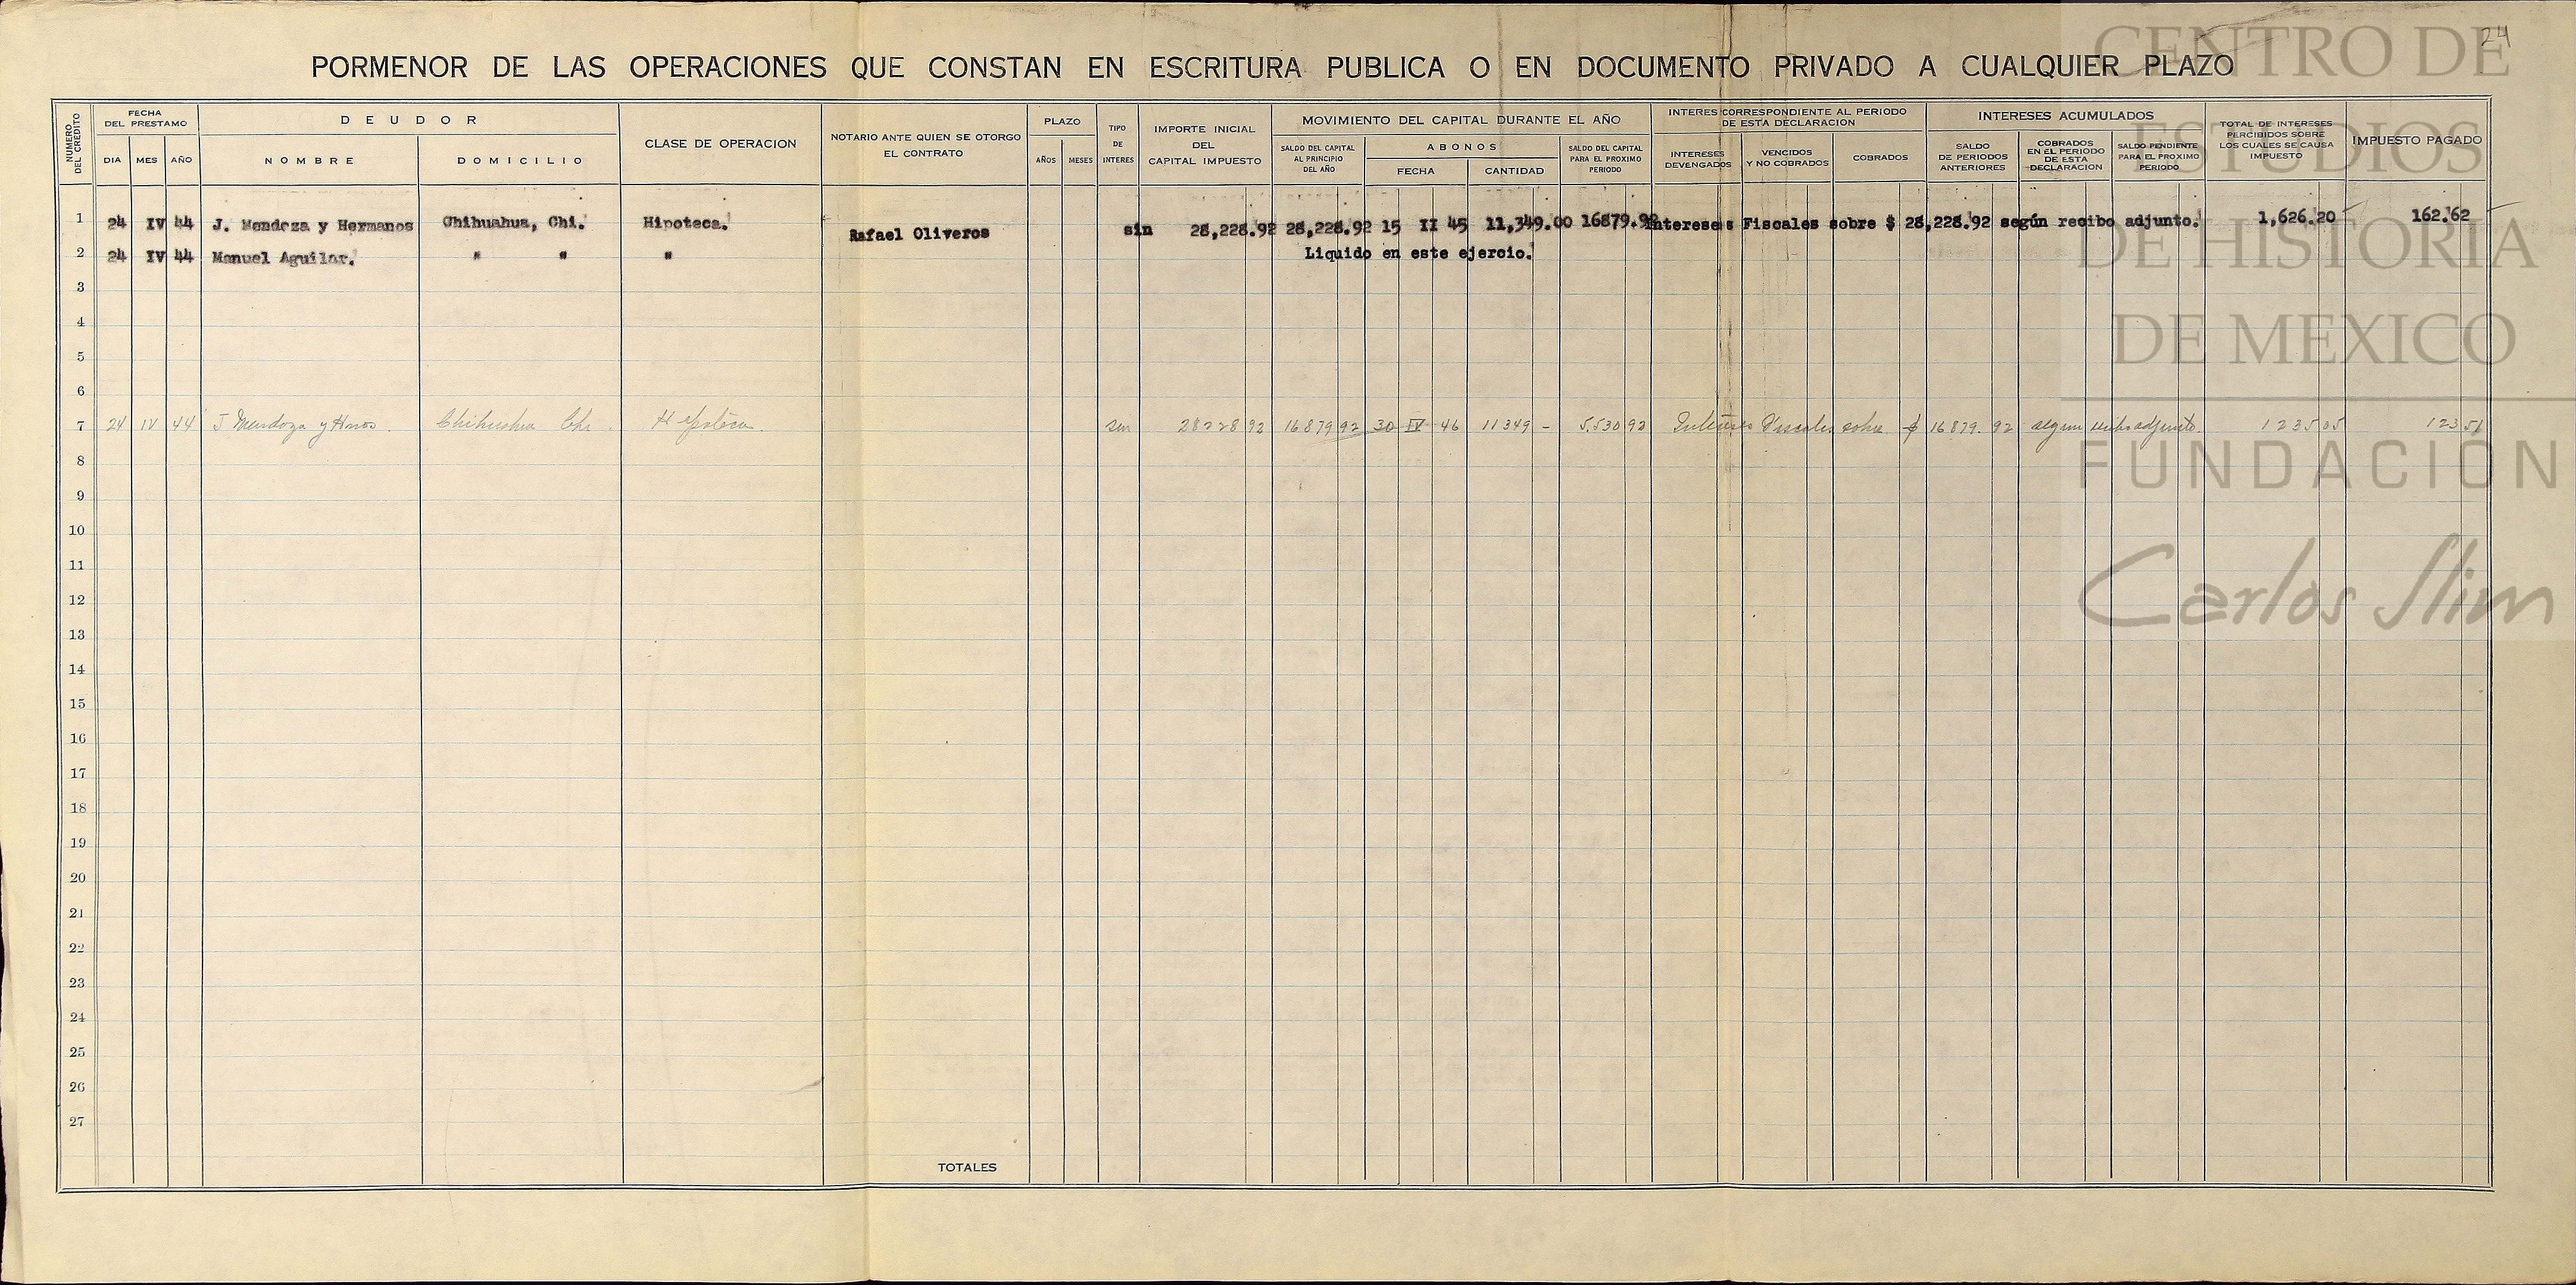 24
PORMENOR DE LAS OPERACIONES QUE CONSTAN EN ESCRITURA PUBLICA O EN DOCUMENTO PRIVADO A CUALQUIER PLAZO
NUMERO DEL CREDITO
FECHA DEL PRESTAMO
DIA MES AÑO
DEUDOR
NOMBRE DOMICILIO
CLASE DE OPERACION
NOTARIO ANTE QUIEN SE OTORGO EL CONTRATO
PLAZO
AÑOS MESES
TIPO DE INTERES
IMPORTE INICIAL DEL CAPITAL IMPUESTO
MOVIMIENTO DEL CAPITAL DURANTE EL AÑO
SALDO DEL CAPITAL AL PRINCIPIO DEL AÑO
ABONOS
FECHA CANTIDAD
SALDO DEL CAPITAL PARA EL PROXIMO PERIODO
INTERES CORRESPONDIENTE AL PERIODO DE ESTA DECLARACION
INTERESES DEVENGADOS
VENCIDOS Y NO COBRADOS
COBRADOS
INTERESES ACUMULADOS
SALDO DE PERIODOS ANTERIORES
COBRADOS EN EL PERIODO DE ESTA DECLARACION
SALDO PENDIENTE PARA EL PROXIMO PERIODO
TOTAL DE INTERESES PERCIBIDOS SOBRE LOS CUALES SE CAUSA IMPUESTO
IMPUESTO PAGADO
1 24 IV 44 J. Mendoza y Hermanos Chihuahua, Chi. Hipoteca. Rafael Oliveros sin 28,228.92 28,228.92 15 II 45 11,349.00 16879.92 Intereses Fiscales sobre $ 28,228.92 según recibo adjunto. 1,626.20 162.62
2 24 IV 44 Manuel Aguilar. " " " Liquido en este ejercio.
3
4
5
6
7 24 IV 44 J Mendoza y Hnos. Chihuahua Chi. Hipoteca sin 28228 92 16879 92 30 IV 46 11349 - 5.530 92 Intereses Fiscales sobre $ 16879.92 segun recibo adjunto. 1235 05 123 51
8
9
10
11
12
13
14
15
16
17
18
19
20
21
22
23
24
25
26
27
TOTALES
CENTRO DE
ESTUDIOS
DE HISTORIA
DE MEXICO
FUNDACIÓN
Carlos Slim